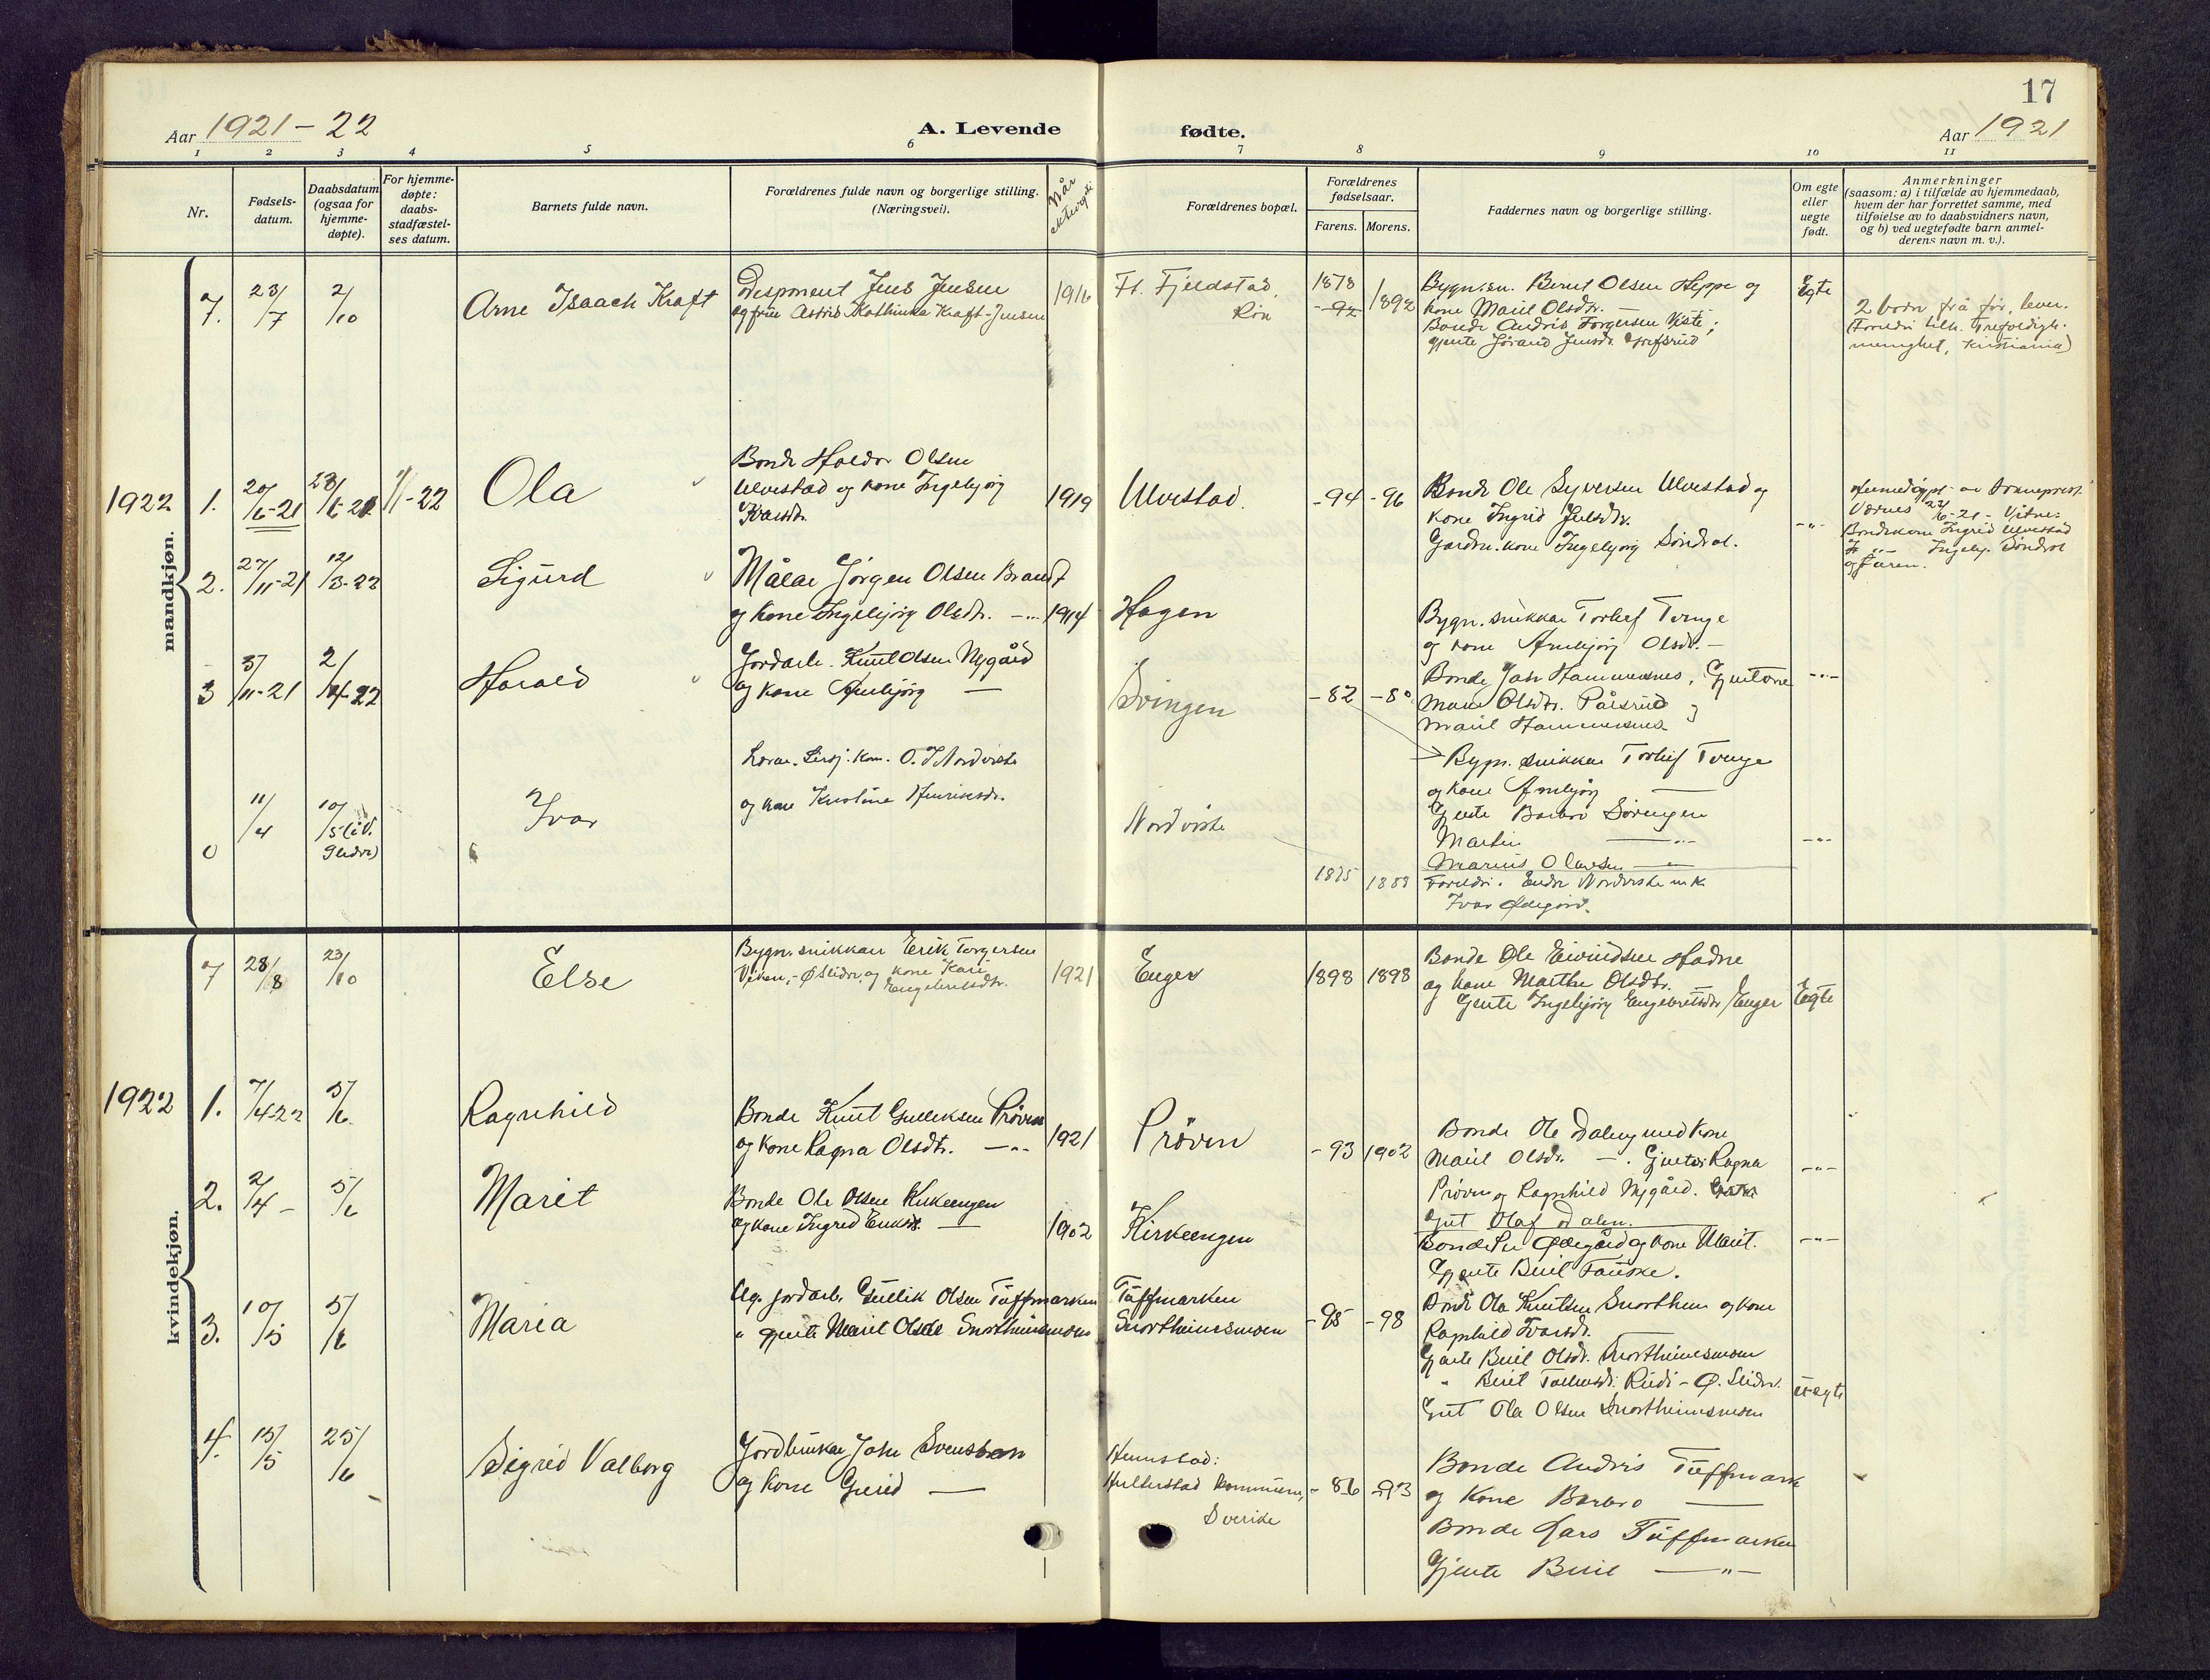 17
Aar 1921-22
A. Levende
fødte.
Aar 1921
1 2 3 4 5 6 7 8 9 10 11
Nr.
Fødsels-
datum.
Daabsdatum
(ogsaa for
hjemme-
døpte).
For hjemme-
døpte:
daabs-
stadfæstel-
ses datum.
Barnets fulde navn.
Forældrenes fulde navn og borgerlige stilling.
(Næringsvei).
Når
ektevigti
Forældrenes bopæl.
Forældrenes
fødselsaar.
Farens. Morens.
Faddernes navn og borgerlige stilling.
Om egte
eller
uegte
født.
Anmerkninger
(saasom: a) i tilfælde av hjemmedaab,
hvem der har forrettet samme, med
tilføielse av to daabsvidners navn,
og b) ved uegtefødte barn anmel-
derens navn m. v.).
mandkjøn.
7. 23/7 2/10
Arne Isaach Kraft
Disponent Jens Jensen
og frue Astrid Kathinka Kraft-Jensen
1916
Ft. Fjeldstad,
Røn
1878
-92
1892
Bygn.sn. Bernt Olsen Hippe og
kone Marit Olsdtr. —
Bonde Andris Torgersen Viste;
gjente Jørand Jensdr.
Egte
2 born frå før, lever.
(Foreldri tilh. Trefoldigh.
menighet, Kristiania)
1922 1. 20/6-21 23/6-21 1/1-22
Ola
Bonde Haldor Olsen
Ulvestad og kone Ingebjørg
Ivarsdr.
1919
Ulvestad.
-94 -96
Bonde Ole Syversen Ulvestad og
kone Ingrid Julsdtr.
Gardm. kone Ingebjørg Søndrol.
-"-
Heimedøypt av Sokneprest
Værnes 23/6-21 - Vitne:
Bondekone Ingrid Ulvestad
-"- Ingebj. Søndrol
og faren.
2. 27/11-21 12/3-22
Sigurd
Målar Jørgen Olsen Brandt
og kone Ingebjørg Olsdtr. -"-
1914
Hagen
Bygn. snikkar Torleif Tvenge
og kone Anebjørg Olsdt. —
3 3/11-21 2/4-22
Harald
Jordarb. Knut Olsen Nygård
og kone Anebjørg —
Svingen
-82 -80
Bonde Jah Hammersnes, Gjentone
Mari Olsdtr. Pålsrud
Marit Hammersnes
-"-
Bygn. snikkar Torleif Tvenge
og kone Anebjørg —
0 11/4 10/5 (i V.
Slidre)
Ivar
Lærar. Lensj. kom. O. I Nordviste
og kone Kristine Henriksdr.
Nordviste
1875 1888
Gjente Barbro Svingen
Martin -"-
Marius Olausen —
-"-
Foreldri. Endre Nordviste m. k.
Ivar Ødegård.
kvindekjøn.
7 28/8 23/10
Else
Bygn.snikkar Erik Torgersen
Viken, - Ø Slidre og kone Kari
Engebretsdtr.
1921
Enger
1898 1898
Bonde Ole Eivindsen Hadne
og kone Marthe Olsdtr. —
Gjente Ingebjørg Engebretsdtr Enger
Egte
1922 1. 7/4-22 5/6
Ragnhild
Bonde Knut Gulleksen Prøven
og kone Ragna Olsdtr. -"-
1921
Prøven
-93 1902
Bonde Ole Dalen med kone
Marit Olsdr. —. Gjentor Ragna
Prøven og Ragnhild Nygård.
Gut Olaf Dalen.
-"-
2. 2/4 - 5/6
Marit
Bonde Ole Olsen Kirkeengen
og kone Ingrid Eriksdt. —
1902
Kirkeengen
Bonde Per Ødegård og kone Marit.
Gjente Berit Fauske.
-"-
3. 10/5 5/6
Maria
Ug. jordarb. Gullik Olsen Tuffmarken
" gjente Marit Olsdt Snortheimsmoen
Tuffmarken
Snortheimsmoen
-95 -98
Bonde Ola Knutsen Snortheim og kone
Ragnhild Ivarsdt.
Gjente Berit Olsdr. Snortheimsmoen
" Berit Tollevsdr. Rudi - Ø. Slidre.
Gut Ola Olsen Snortheimsmoen
uegte
4. 15/5 25/6
Sigrid Valborg
Jordbrukar John Svensson
og kone Gurid —
Hemstad:
Hulterstad kommune,
Sverike
-86 -93
Bonde Andris Tuffmark
og Kone Barbro —
Bonde Lars Tuffmarken
Gjente Berit -"-